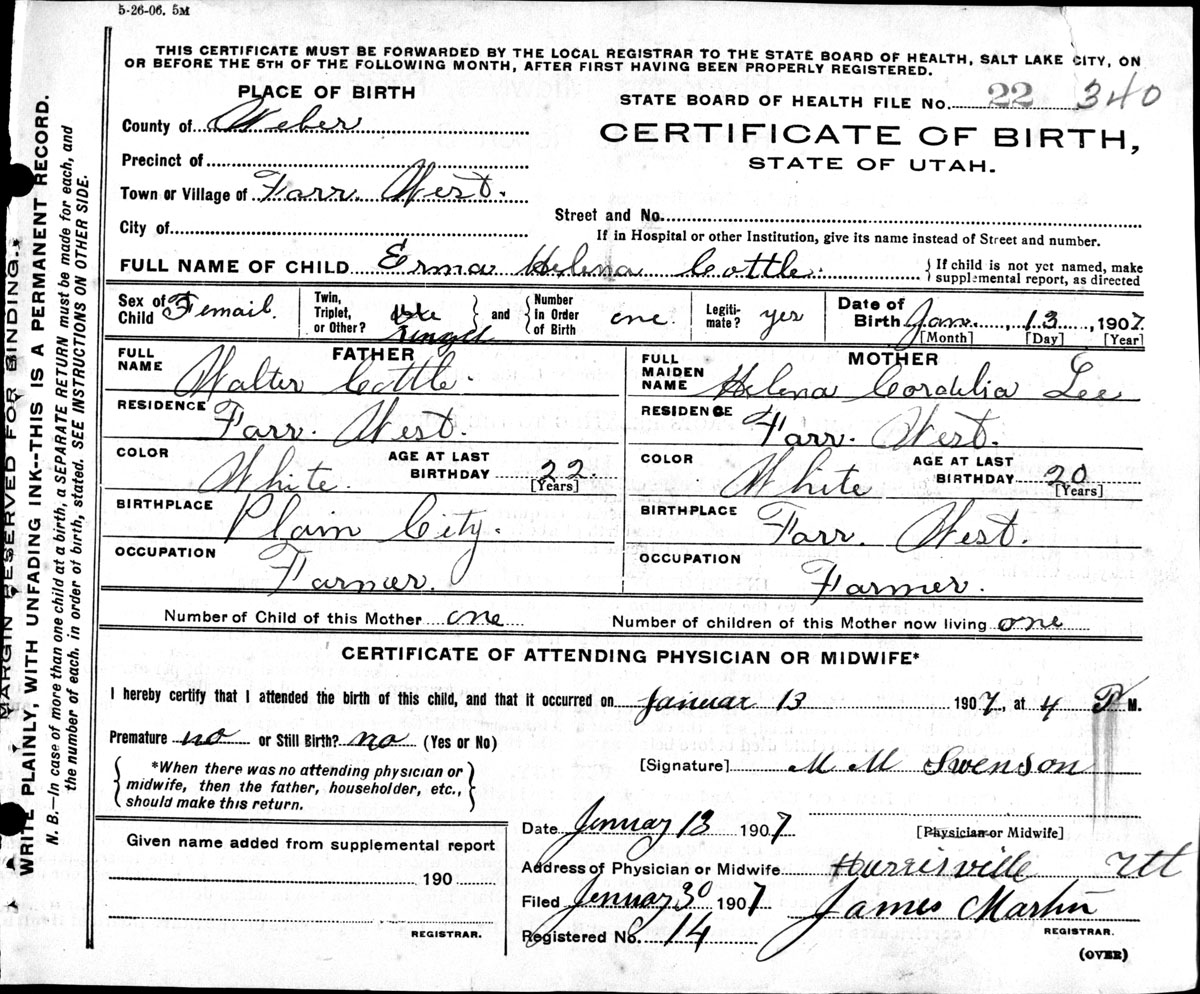 5-26-06. 5M
THIS CERTIFICATE MUST BE FORWARDED BY THE LOCAL REGISTRAR TO THE STATE BOARD OF HEALTH, SALT LAKE CITY, ON
OR BEFORE THE 5TH OF THE FOLLOWING MONTH, AFTER FIRST HAVING BEEN PROPERLY REGISTERED.
PLACE OF BIRTH
STATE BOARD OF HEALTH FILE No. 22 340
County of Weber
CERTIFICATE OF BIRTH,
STATE OF UTAH.
Precinct of
Town or Village of Farr West.
Street and No.
City of
If in Hospital or other Institution, give its name instead of Street and number.
FULL NAME OF CHILD Erma Helena Cottle. { If child is not yet named, make
supplemental report, as directed
Sex of Child Femail. Twin, Triplet, or Other? } and { Number in Order of Birth one. Legiti-mate? yes Date of Birth Jan. 13, 1907.
[Month] [Day] [Year]
FATHER
FULL NAME Walter Cottle.
RESIDENCE Farr. West.
COLOR White AGE AT LAST BIRTHDAY 22 [Years]
BIRTHPLACE Plain City.
OCCUPATION Farmer.
MOTHER
FULL MAIDEN NAME Helena Cordelia Lee
RESIDENCE Farr. West.
COLOR White AGE AT LAST BIRTHDAY 20 [Years]
BIRTHPLACE Farr. West.
OCCUPATION Farmer.
Number of Child of this Mother one Number of children of this Mother now living one
CERTIFICATE OF ATTENDING PHYSICIAN OR MIDWIFE*
I hereby certify that I attended the birth of this child, and that it occurred on Januar 13 1907, at 4 P M.
Premature no or Still Birth? no (Yes or No)
{ *When there was no attending physician or
midwife, then the father, householder, etc.,
should make this return. }
[Signature] M M Swenson
Date Jenuay 13 1907
[Physician or Midwife]
Given name added from supplemental report
190
REGISTRAR.
Address of Physician or Midwife Harrisville Utt
Filed Jenuay 30 1907 James Martin
REGISTRAR.
Registered No. 14
(OVER)
MARGIN RESERVED FOR BINDING.
WRITE PLAINLY, WITH UNFADING INK--THIS IS A PERMANENT RECORD.
N. B.—In case of more than one child at a birth, a SEPARATE RETURN must be made for each, and
the number of each. in order of birth, stated. SEE INSTRUCTIONS ON OTHER SIDE.